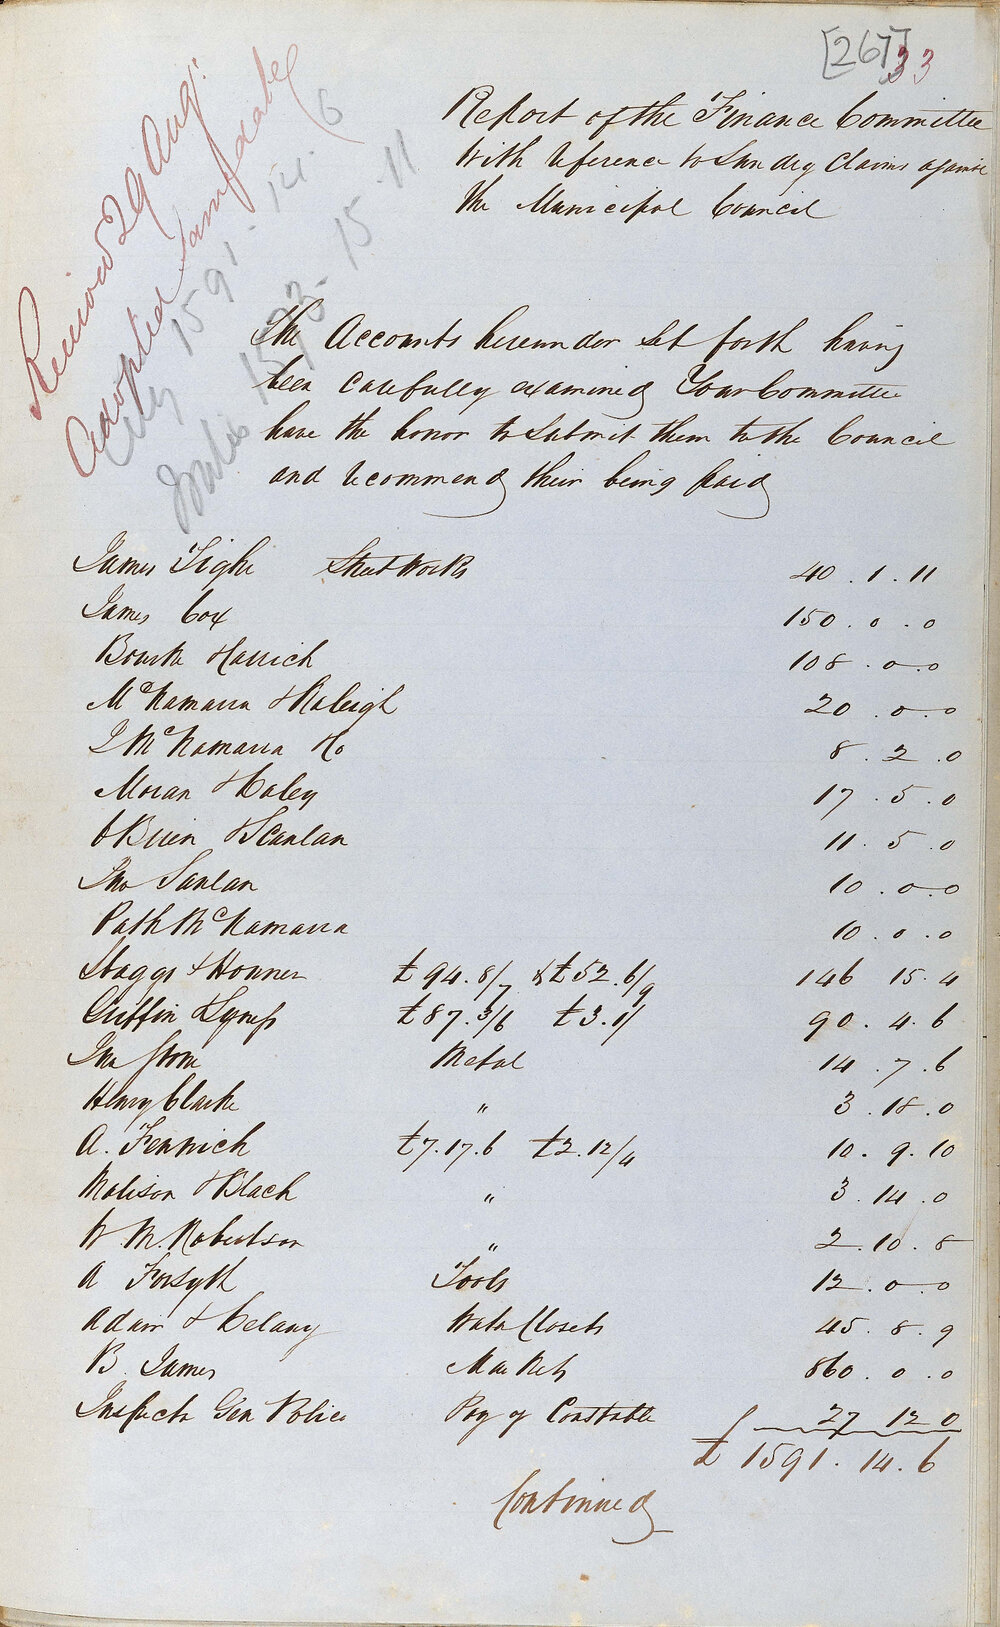 [267] 33
Report of the Finance Committee
With reference to Sundry Claims against
the Municipal Council
Received 29 Augt
Adopted same date
City 1591. 14. 6
1593. 15. 11
The Accounts hereunder set forth having
been Carefully examined Your Committee
have the honor to Submit them to the Council
and recommend their being paid
James Tighe Street Works 40 . 1 . 11
James Cox 150 . 0 . 0
Bourke Harrich 108 . 0 . 0
McNamara & Raleigh 20 . 0 . 0
J McNamara & Co 8 . 2 . 0
Moran & Caley 17 . 5 . 0
OBrien & Scanlan 11 . 5 . 0
Jno Sanlan 10 . 0 . 0
Path McNamara 10 . 0 . 0
Staggs & Honner £94. 8/7 & £52. 6/9 146 15. 4
Griffin & Synnf £87. 3/6 £3. 1/ 90 . 4. 6
Jno Metal 14 . 7 . 6
Henry Clarke " 3 . 18 . 0
A. Fenwich £7. 17. 6 £2. 12/4 10 . 9. 10
Malison & Black " 3 . 14 . 0
W. M. Robertson " 2. 10. 8
A Forsyth Tools 12 . 0 . 0
Adam & Delany Water Closets 45. 8. 9
B. James Markets 860 . 0 . 0
Inspectr Gen Police Pay of Constable 27 12 0
£ 1591. 14. 6
Continued